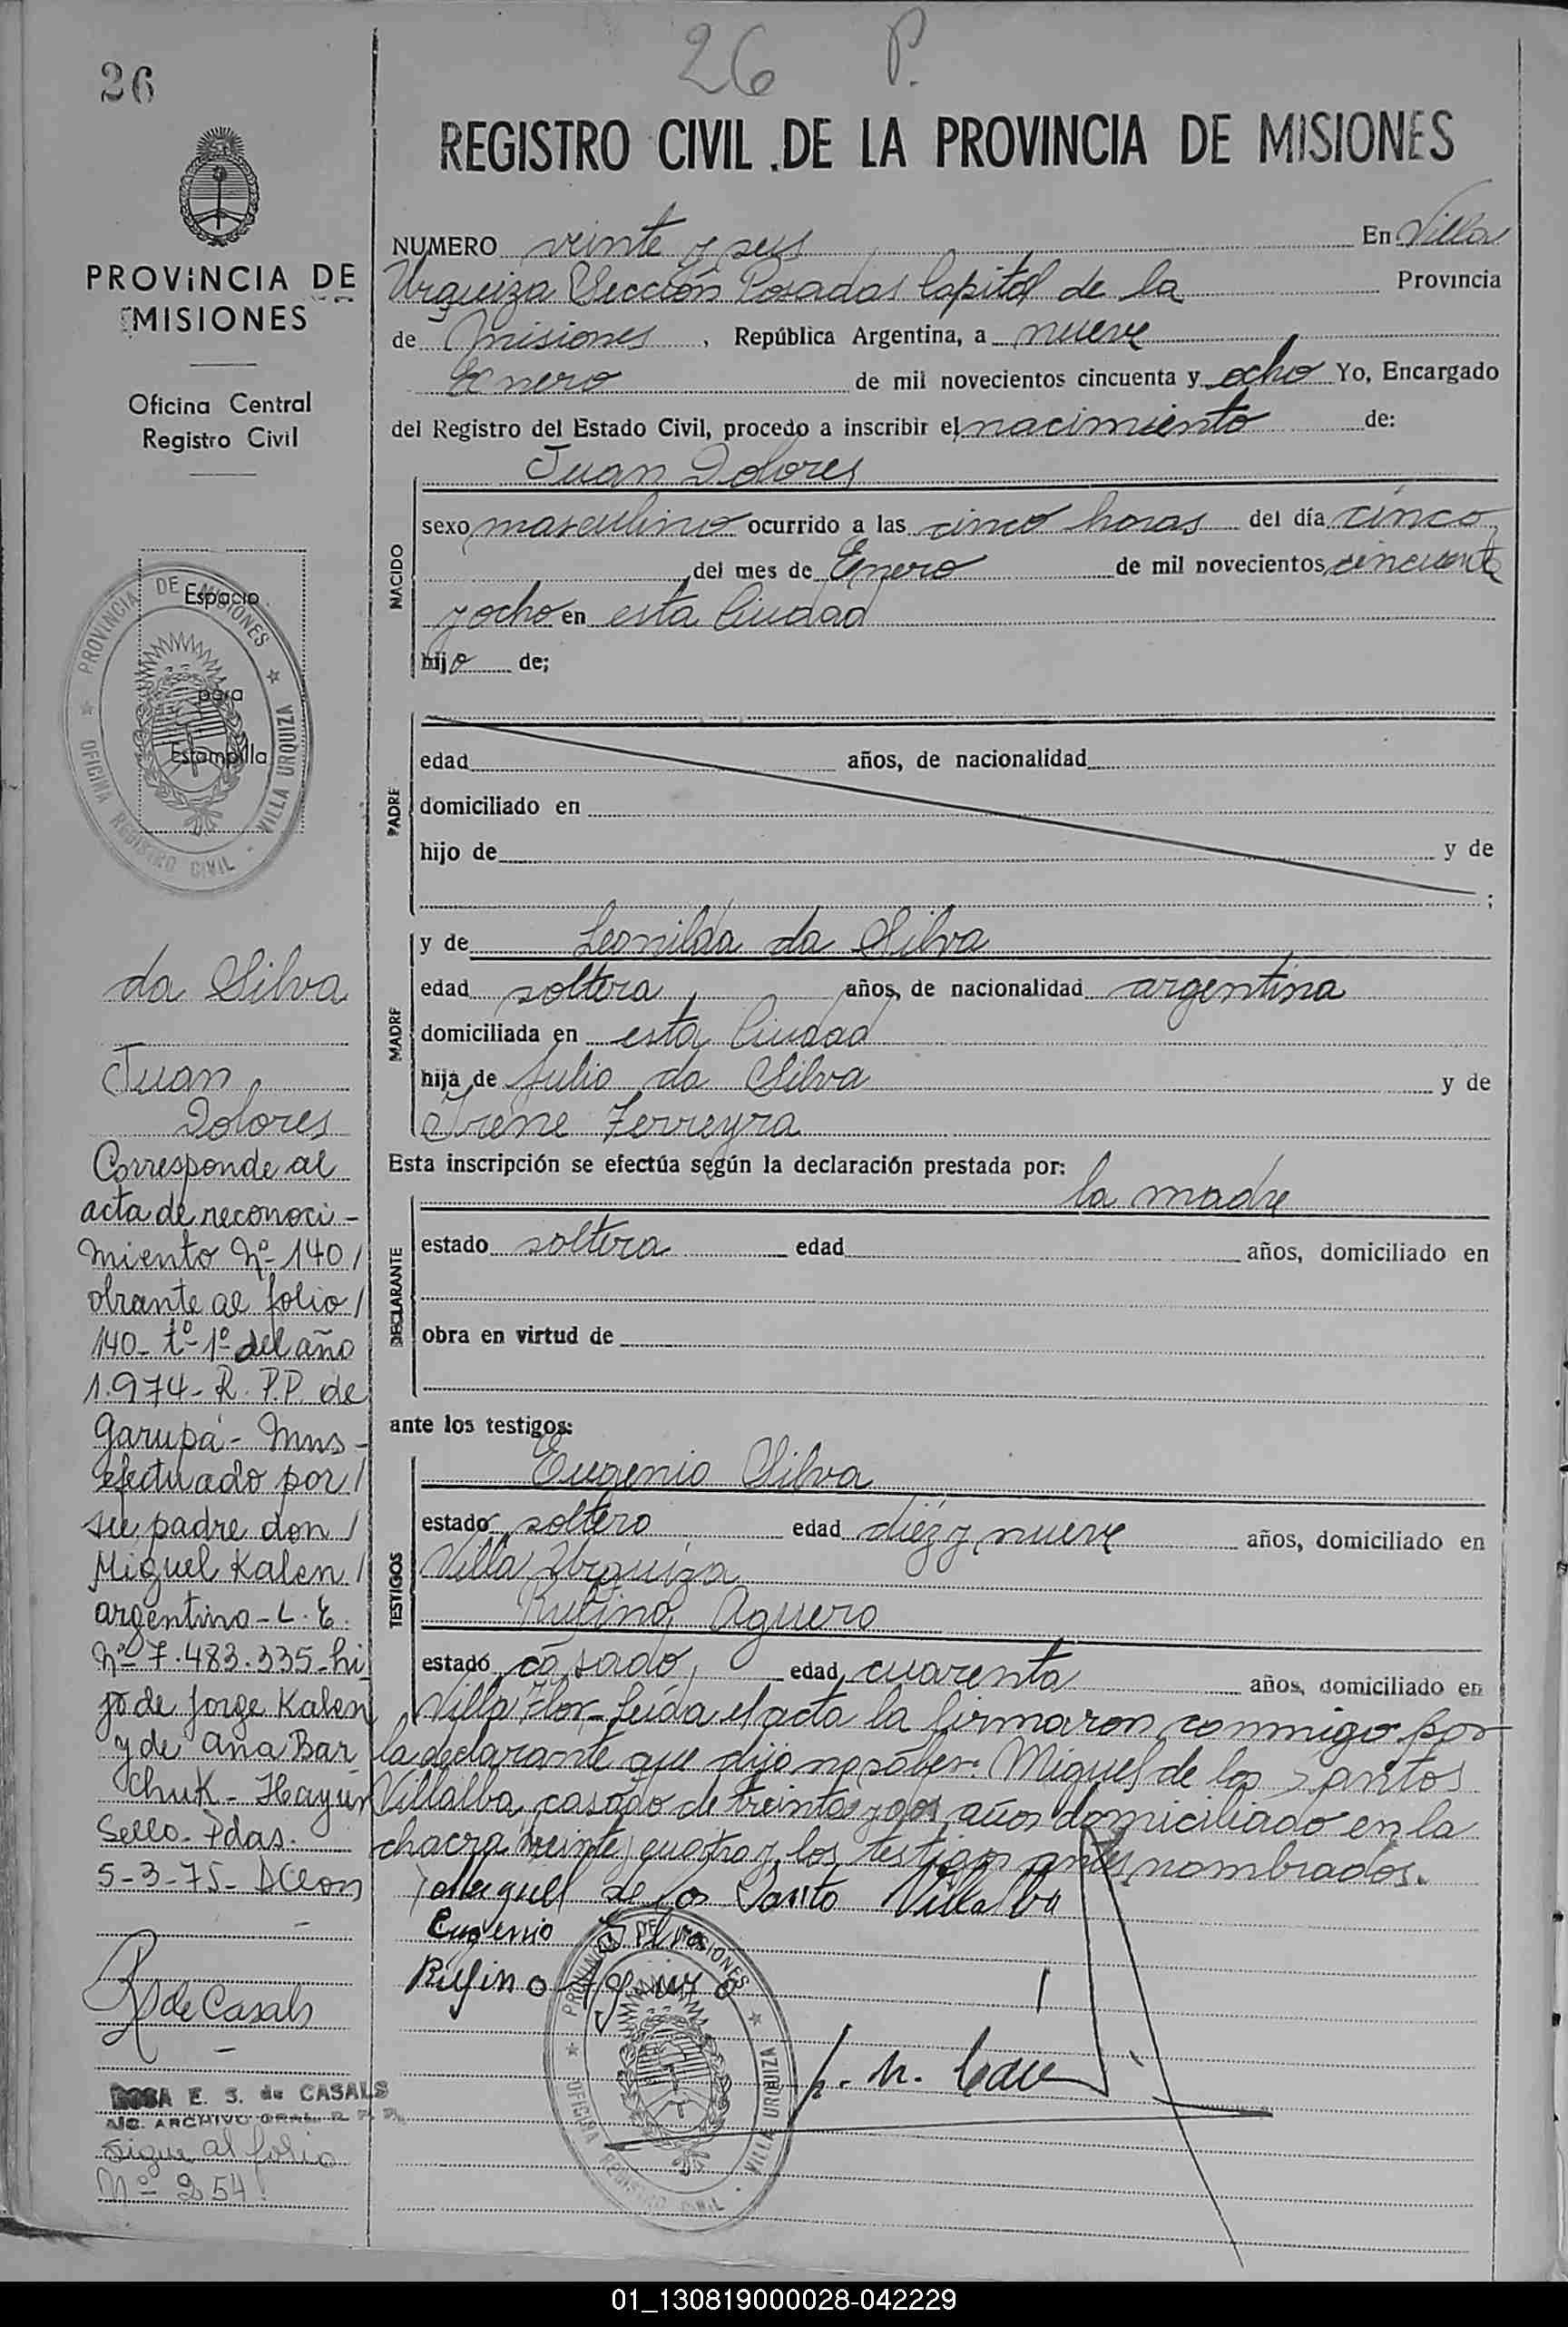 26 P.
26
REGISTRO CIVIL DE LA PROVINCIA DE MISIONES
PROVINCIA DE
MISIONES
Oficina Central
Registro Civil
Espacio
para
Estampilla
PROVINCIA DE MISIONES
OFICINA REGISTRO CIVIL - VILLA URQUIZA
da Silva
Juan
Dolores
Corresponde al
acta de reconoci-
miento Nº 140/
obrante al folio/
140- tº 1º del año
1.974- R. P.P. de
Garupá- Mns-
efectuado por/
su padre don/
Miguel Kalen/
argentino- L. E.
Nº 7.483.335- hi
jo de Jorge Kalen
y de Ana Bar
chuk- Hay un
Sello- Pdas.
5-3-75-
R S de Casals
ROSA E. S. de CASALS
ARCHIVO GRAL. R. P. P.
Sigue al folio
Nº 254!
NUMERO veinte y seis En Villa
Urquiza Sección Posadas Capital de la Provincia
de Misiones, República Argentina, a nueve
Enero de mil novecientos cincuenta y ocho Yo, Encargado
del Registro del Estado Civil, procedo a inscribir el nacimiento de:
Juan Dolores
NACIDO
sexo masculino ocurrido a las cinco horas del día cinco
del mes de Enero de mil novecientos cincuenta
y ocho en esta Ciudad
hijo de;
PADRE
edad años, de nacionalidad
domiciliado en
hijo de y de
;
MADRE
y de Leonilda da Silva
edad soltera, años, de nacionalidad argentina
domiciliada en esta Ciudad
hija de Julio da Silva y de
Irene Ferreyra
Esta inscripción se efectúa según la declaración prestada por:
la madre
DECLARANTE
estado soltera edad años, domiciliado en
obra en virtud de
ante los testigos:
TESTIGOS
Eugenio Silva
estado soltero edad diez y nueve años, domiciliado en
Villa Urquiza
Rufino Aguero
estado casado, edad cuarenta años, domiciliado en
Villa Flor- Leída el acta la firmaron conmigo por
la declarante que dijo no saber: Miguel de los Santos
Villalba, casado de treinta y dos años domiciliado en la
chacra treinte y cuatro y los testigos antes nombrados.
Miguel de los Santo Villalba
Eugenio Silva
Rufino Aguero
PROVINCIA DE MISIONES
OFICINA REGISTRO CIVIL - VILLA URQUIZA
01_130819000028-042229